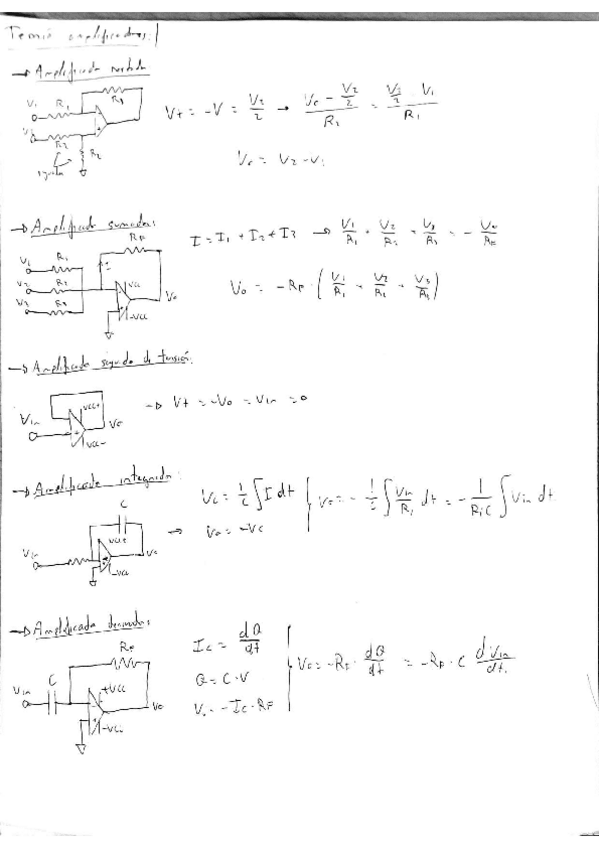 → Amplificador restador
V1 R1 R1
V2 R2 R2
V+ = -V = V2/2 → (Vo - V2/2)/R2 = (V2/2 · V1)/R1
Vo = V2 - V1
→ Amplificador sumador:
RF
V1 R1
V2 R2
V3 R3
I
VCC
-VCC
Vo
I = I1 + I2 + I3 → V1/R1 + V2/R2 + V3/R3 = - Vo/RF
Vo = -RF · (V1/R1 + V2/R2 + V3/R3)
→ Amplificador seguidor de tensión:
Vin VCC+ Vo
VCC-
→ V+ = -Vo = Vin = 0
→ Amplificador integrador:
C
Vin Vo
-VCC
→
Vc = 1/C ∫ I dt
Vo = -Vc
Vo = - 1/C ∫ Vin/Ri dt = - 1/RiC ∫ Vin dt
→ Amplificador derivador:
RF
Vin C +VCC Vo
-VCC
Ic = dQ/dt
Q = C · V
Vo = -Ic · RF
Vo = -RF · dQ/dt = -RF · C dVin/dt